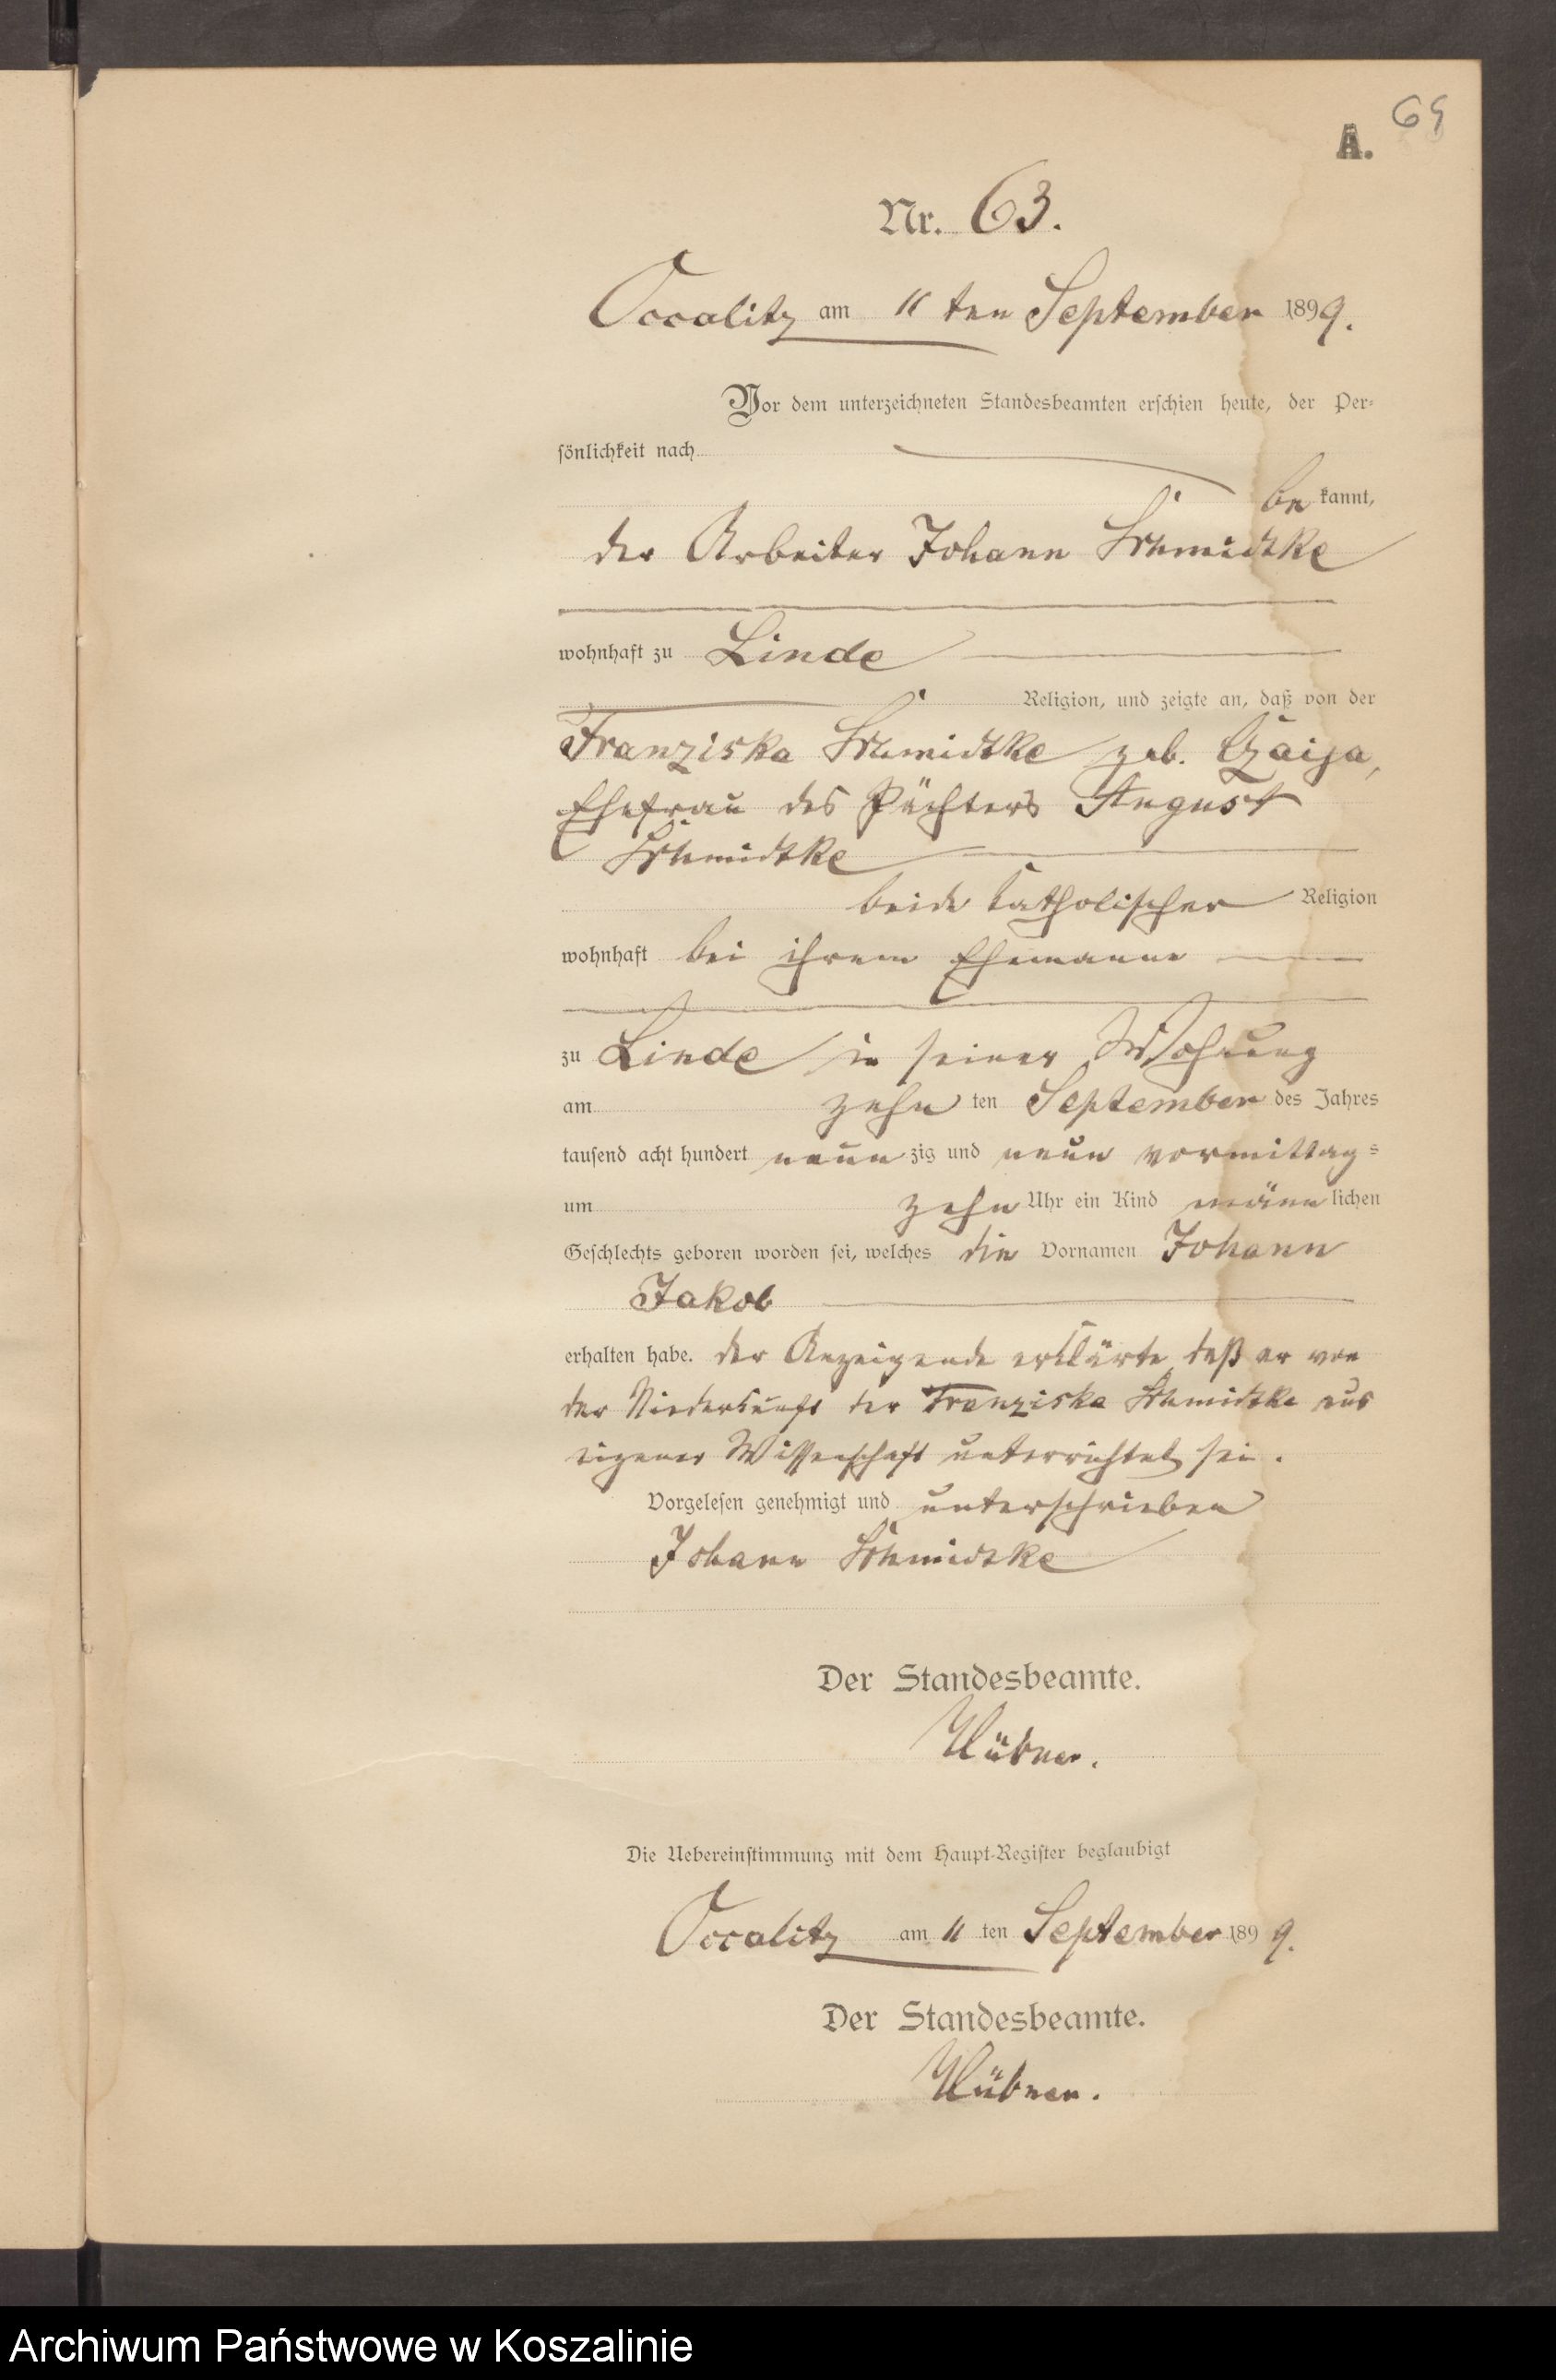 65
A.
Nr. 63.
Occalitz am 11 ten September 1899.
Vor dem unterzeichneten Standesbeamten erschien heute, der Per-
sönlichkeit nach
be kannt,
der Arbeiter Johann Schmidtke
wohnhaft zu Linde
Religion, und zeigte an, daß von der
Franziska Schmidtke geb. Czaija,
Ehefrau des Pächters August
Schmidtke
beide katholischer Religion
wohnhaft bei ihrem Ehemanne
zu Linde in seiner Wohnung
am zehn ten September des Jahres
tausend acht hundert neun zig und neun vormittag s
um zehn Uhr ein Kind männ lichen
Geschlechts geboren worden sei, welches die Vornamen Johann
Jakob
erhalten habe. Der Anzeigende erklärte, daß er von
der Niederkunft der Franziska Schmidtke aus
eigener Wissenschaft unterrichtet sei.
Vorgelesen genehmigt und unterschrieben
Johann Schmidtke
Der Standesbeamte.
Hübner.
Die Uebereinstimmung mit dem Haupt-Register beglaubigt
Occalitz am 11 ten September 1899.
Der Standesbeamte.
Hübner.
Archiwum Państwowe w Koszalinie